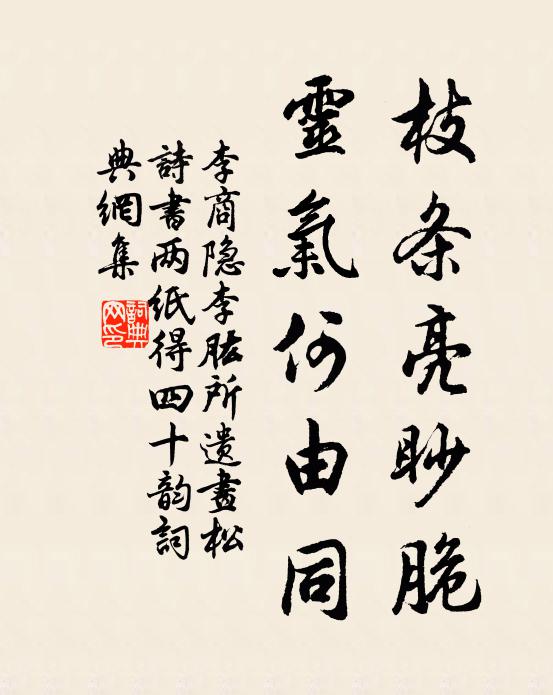 枝条亮眇脆
靈氣何由同
李商隐李肱所遺畫松
詩書两紙得四十韵詞
典網集
詞典网印